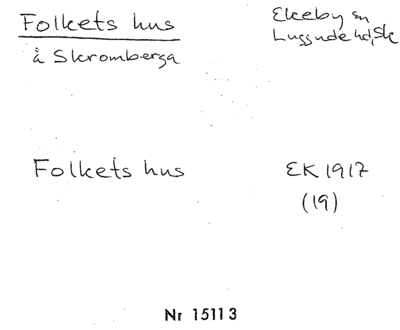 Folkets hus
å Skromberga
Ekeby sn
Luggude hd, Sk
Folkets hus
EK 1917
(19)
Nr 15113